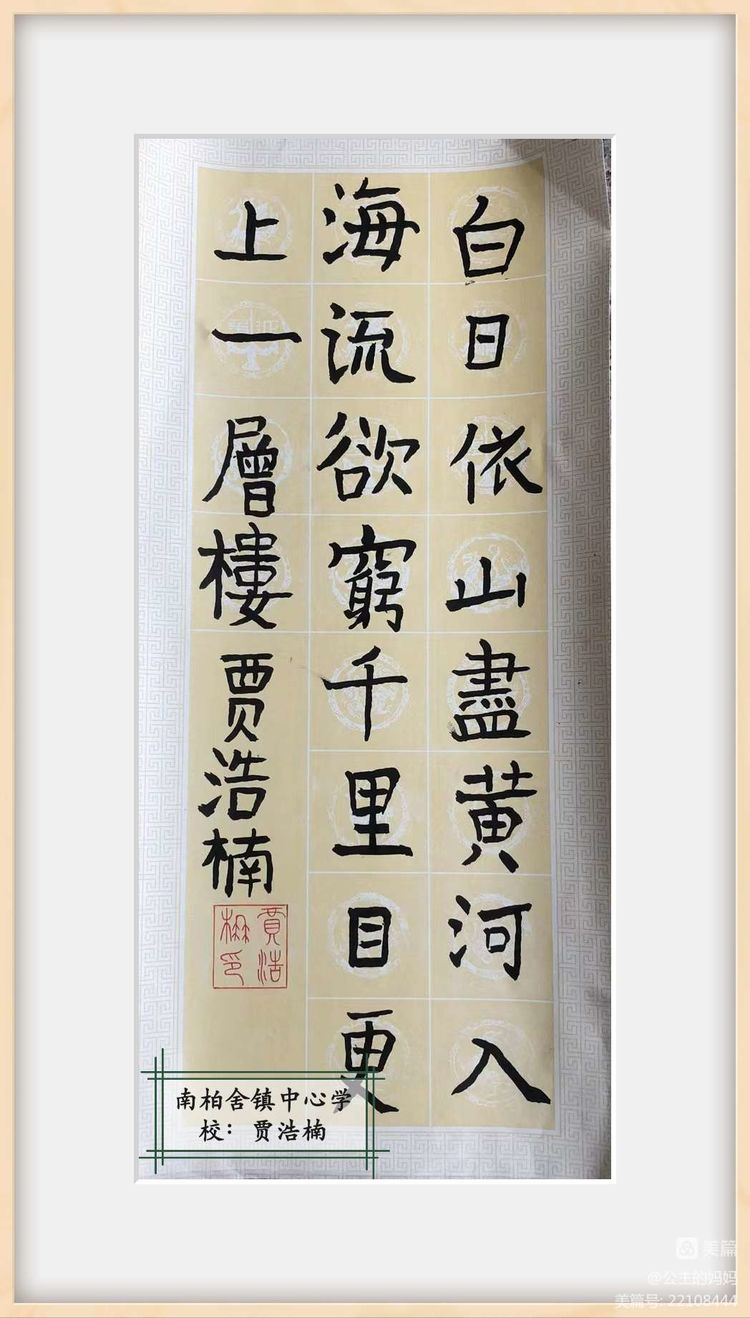 白日依山盡黄河入
海流欲窮千里目更
上一層樓 贾浩楠
賈浩楠印
南柏舍镇中心学
校：贾浩楠
美篇
@公主的妈妈
美篇号: 22108444